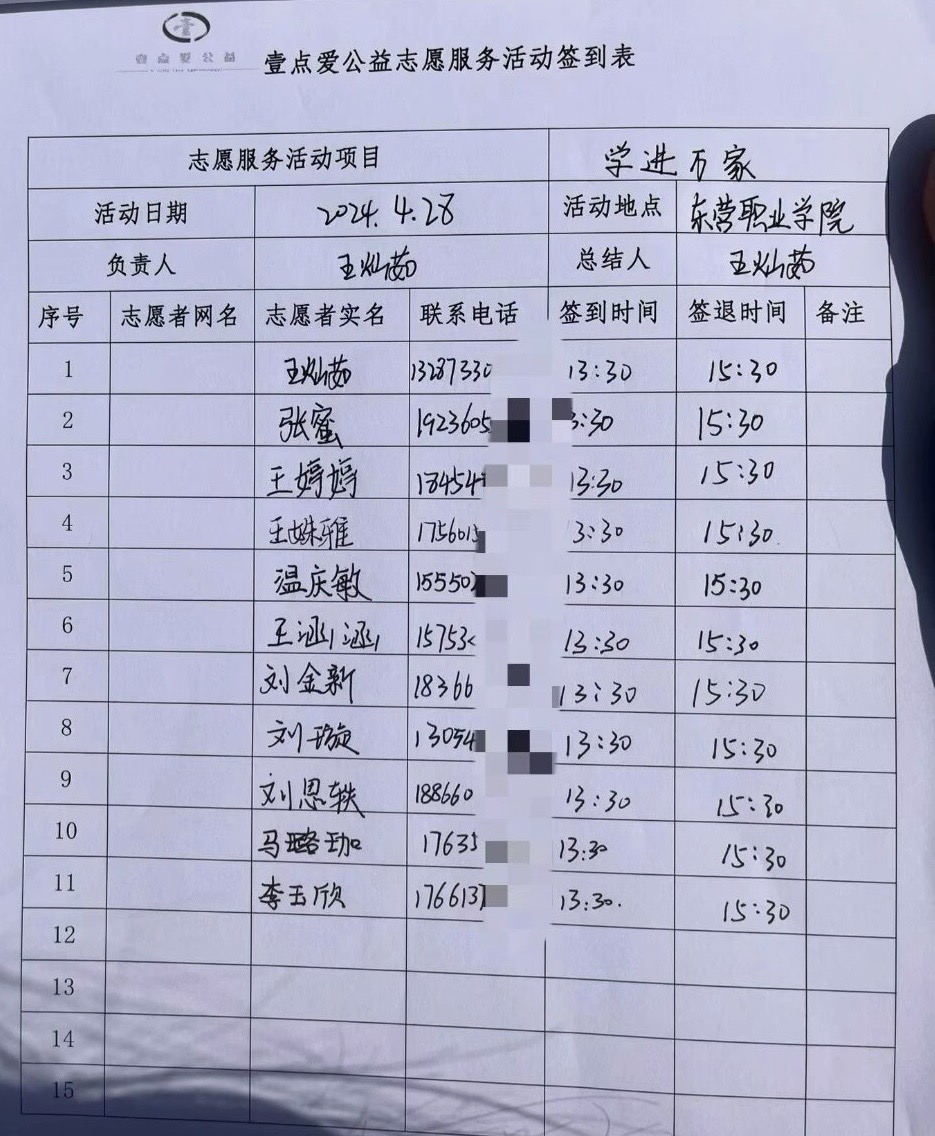 壹点爱公益
壹点爱公益志愿服务活动签到表
志愿服务活动项目 学进万家
活动日期 2024.4.28 活动地点 东营职业学院
负责人 王灿茹 总结人 王灿茹
序号 志愿者网名 志愿者实名 联系电话 签到时间 签退时间 备注
1 王灿茹 13287330 13:30 15:30
2 张蜜 1923605 3:30 15:30
3 王婷婷 18454 13:30 15:30
4 王姝雅 175601 3:30 15:30
5 温庆敏 15550 13:30 15:30
6 王涵涵 15753 13:30 15:30
7 刘金新 18366 13:30 15:30
8 刘璇 13054 13:30 15:30
9 刘恩轶 188660 13:30 15:30
10 马璐珈 1763 13:30 15:30
11 李玉欣 176613 13:30. 15:30
12
13
14
15